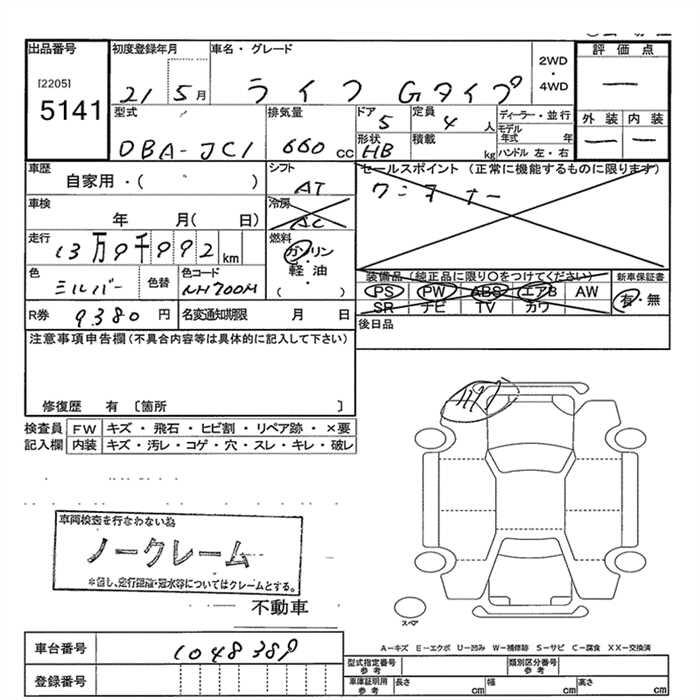 出品番号 初度登録年月 車名・グレード 2WD ・ 4WD 評価点
[2205] 5141 21 5月 ライフ Gタイプ —
型式 排気量 ドア 定員 ディーラー・並行 外装 内装
DBA-JC1 660cc 5 4人 モデル年式 年 — —
形状 HB 積載 kg ハンドル 左・右
車歴 シフト セールスポイント (正常に機能するものに限ります)
自家用・( ) AT ワンオーナー
車検 冷房
年 月( 日) AC
走行 燃料
13万9千992km ガソリン・軽油・( )
色 色替 色コード 装備品(純正品に限り○をつけてください) 新車保証書
シルバー NH700M PS PW ABS エアB AW 有・無
SR ナビ TV カワ
R券 9380円 名変通知期限 月 日 後日品
注意事項申告欄(不具合内容等は具体的に記入して下さい)
修復歴 有 〔箇所 〕
検査員 FW キズ・飛石・ヒビ割・リペア跡・×要
記入欄 内装 キズ・汚レ・コゲ・穴・スレ・キレ・破レ
車両検査を行なわない為
ノークレーム
*但し、走行距離・冠水等についてはクレームとする。
不動車
スペア
A−キズ E−エクボ U−凹み W−補修跡 S−サビ C−腐食 XX−交換済
車台番号 1048389
登録番号
型式指定番号 参考 類別区分番号 参考
車庫証明用 参考 長さ cm 幅 cm 高さ cm